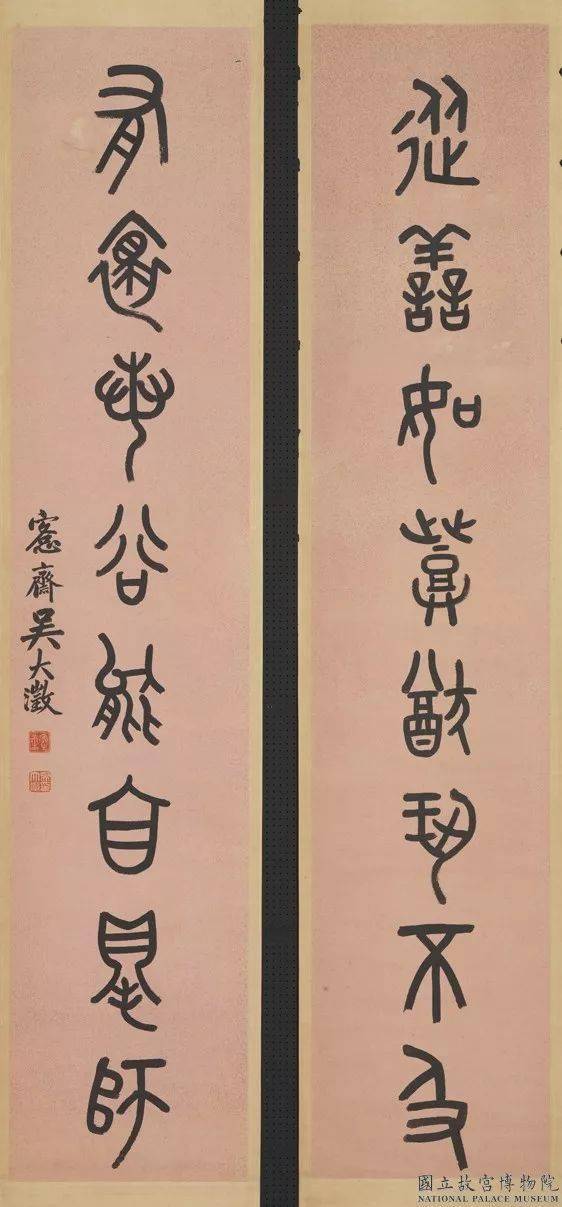 從善如登猶恐不及
有谷能自得師
愙齋吳大澂
國立故宮博物院
NATIONAL PALACE MUSEUM